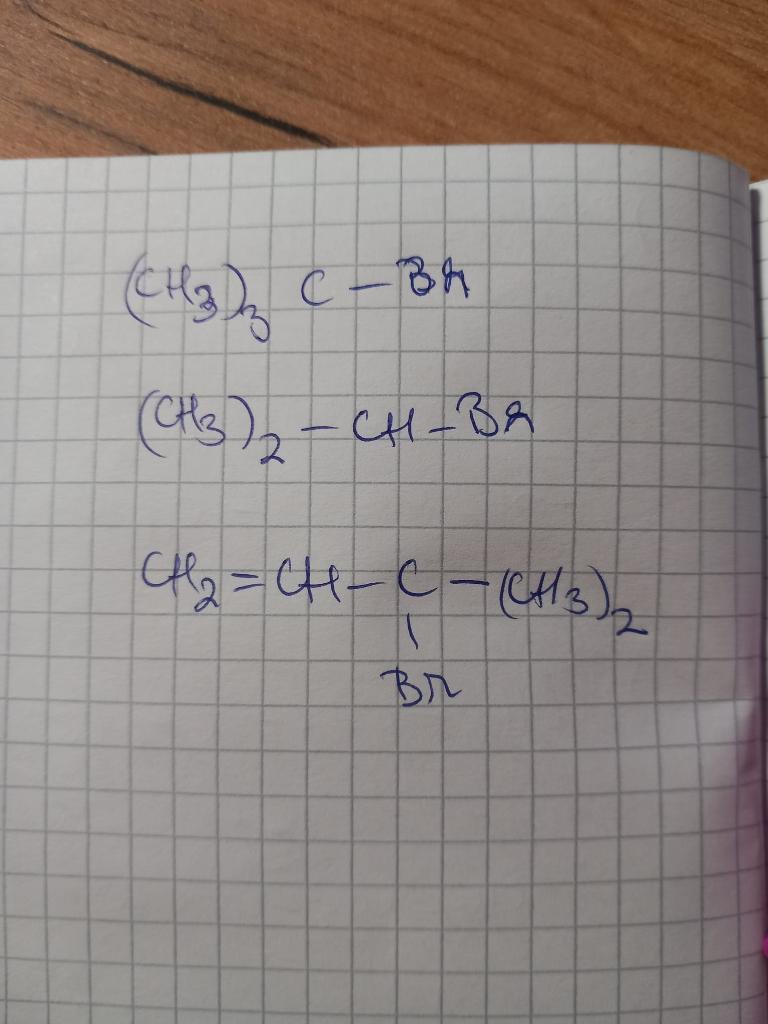 (CH3)3 C - Br
(CH3)2 - CH - Br
CH2 = CH - C - (CH3)2
|
Br